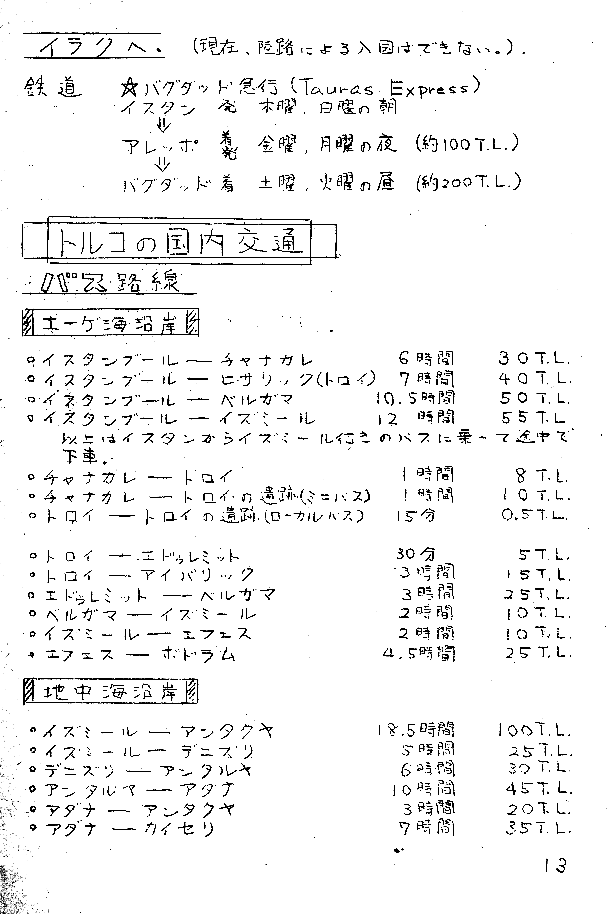 イラクへ. (現在、陸路による入国はできない。).
鉄道 ☆バグダッド急行 (Tauras Express)
イスタン 発 木曜、日曜の朝
⇓
アレッポ 着発 金曜、月曜の夜 (約100T.L.)
⇓
バグダッド着 土曜、火曜の昼 (約200T.L.)
トルコの国内交通
バス路線
エーゲ海沿岸
○イスタンブール ― チャナカレ 6時間 30T.L.
○イスタンブール ― ヒサリック(トロイ) 7時間 40T.L.
○イスタンブール ― ベルガマ 10.5時間 50T.L.
○イスタンブール ― イズミール 12時間 55T.L.
以上はイスタンからイズミール行きのバスに乗って途中で
下車.
○チャナカレ ― トロイ 1時間 8T.L.
○チャナカレ ― トロイの遺跡(ミニバス) 1時間 10T.L.
○トロイ ― トロイの遺跡(ローカルバス) 15分 0.5T.L.
○トロイ ― エドゥレミット 30分 5T.L.
○トロイ ― アイバリック 3時間 15T.L.
○エドゥレミット ― ベルガマ 3時間 25T.L.
○ベルガマ ― イズミール 2時間 10T.L.
○イズミール ― エフェス 2時間 10T.L.
○エフェス ― ボドラム 4.5時間 25T.L.
地中海沿岸
○イズミール ― アンタクヤ 18.5時間 100T.L.
○イズミール ― デニズリ 5時間 25T.L.
○デニズリ ― アンタルヤ 6時間 30T.L.
○アンタルヤ ― アダナ 10時間 45T.L.
○アダナ ― アンタクヤ 3時間 20T.L.
○アダナ ― カイセリ 7時間 35T.L.
13